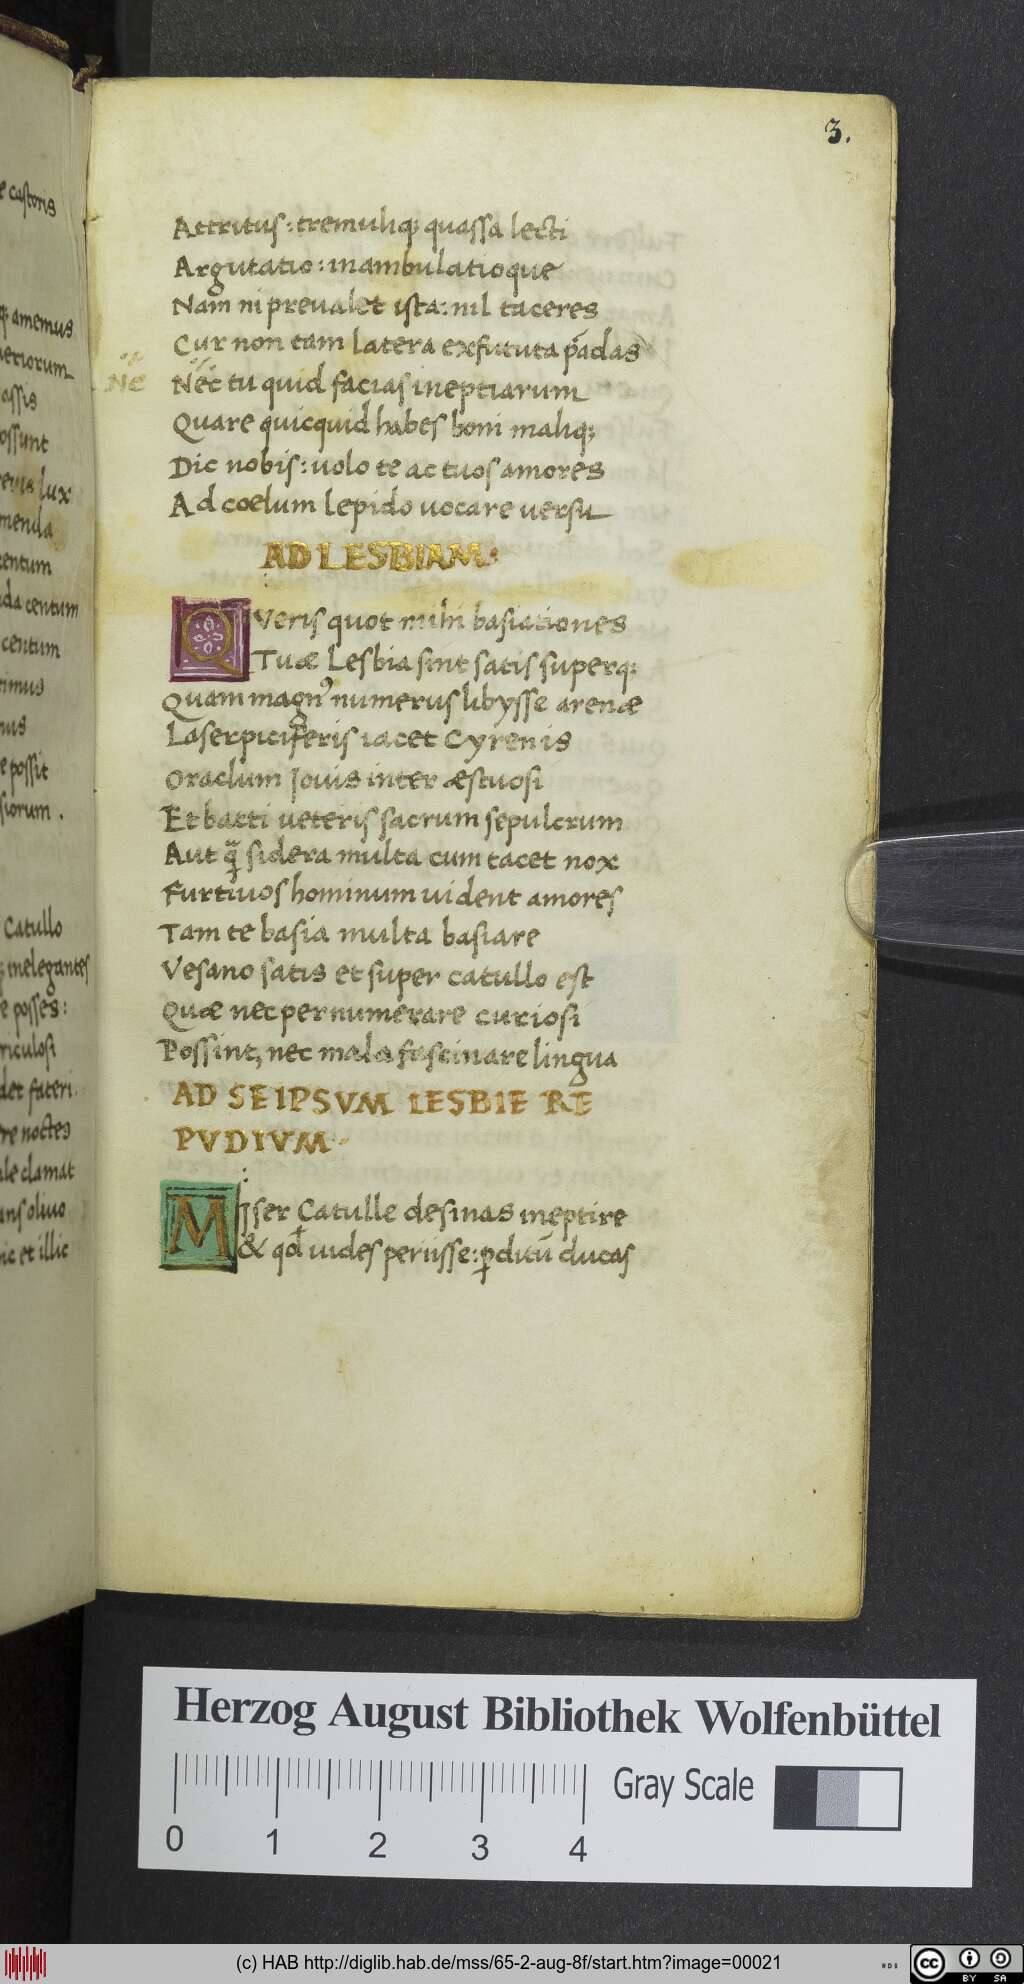 e castoris
q; amemus
ueriorum
assis
ossunt
reuis lux
menda
centum
nda centum
centum
timus
nus
e possit
siorum .
Catullo
q; inelegantes
e posses:
riculosi
det fateri.
re noctes
ale clamat
ans oliuo
hic et illic
3.
Attritus: tremuliq; quassa lecti
Argutatio: inambulatioque
Nam ni preualet ista: nil taceres
Cur non tam latera exfututa p̄adas
Ne
Nec tu quid facias ineptiarum
Quare quicquid habes boni maliq;
Dic nobis: uolo te ac tuos amores
Ad coelum lepido uocare uersu
AD LESBIAM.
QVeris quot mihi basiationes
Tuæ Lesbia sint satis superq:
Quam magnꝰ numerus libysse arenæ
Laserpiciferis iacet Cyrenis
Oraclum Iouis inter æstuosi
Et batti ueteris sacrum sepulcrum
Aut q̄ sidera multa cum tacet nox
Furtiuos hominum uident amores
Tam te basia multa basiare
Vesano satis et super catullo est
Quæ nec pernumerare curiosi
Possint, nec mala fascinare lingua
AD SEIPSVM LESBIE RE
PVDIVM.
MIser Catulle desinas ineptire
& qd uides periisse: ꝑditū ducas
Herzog August Bibliothek Wolfenbüttel
0 1 2 3 4
Gray Scale
(c) HAB http://diglib.hab.de/mss/65-2-aug-8f/start.htm?image=00021
HAB
cc BY SA